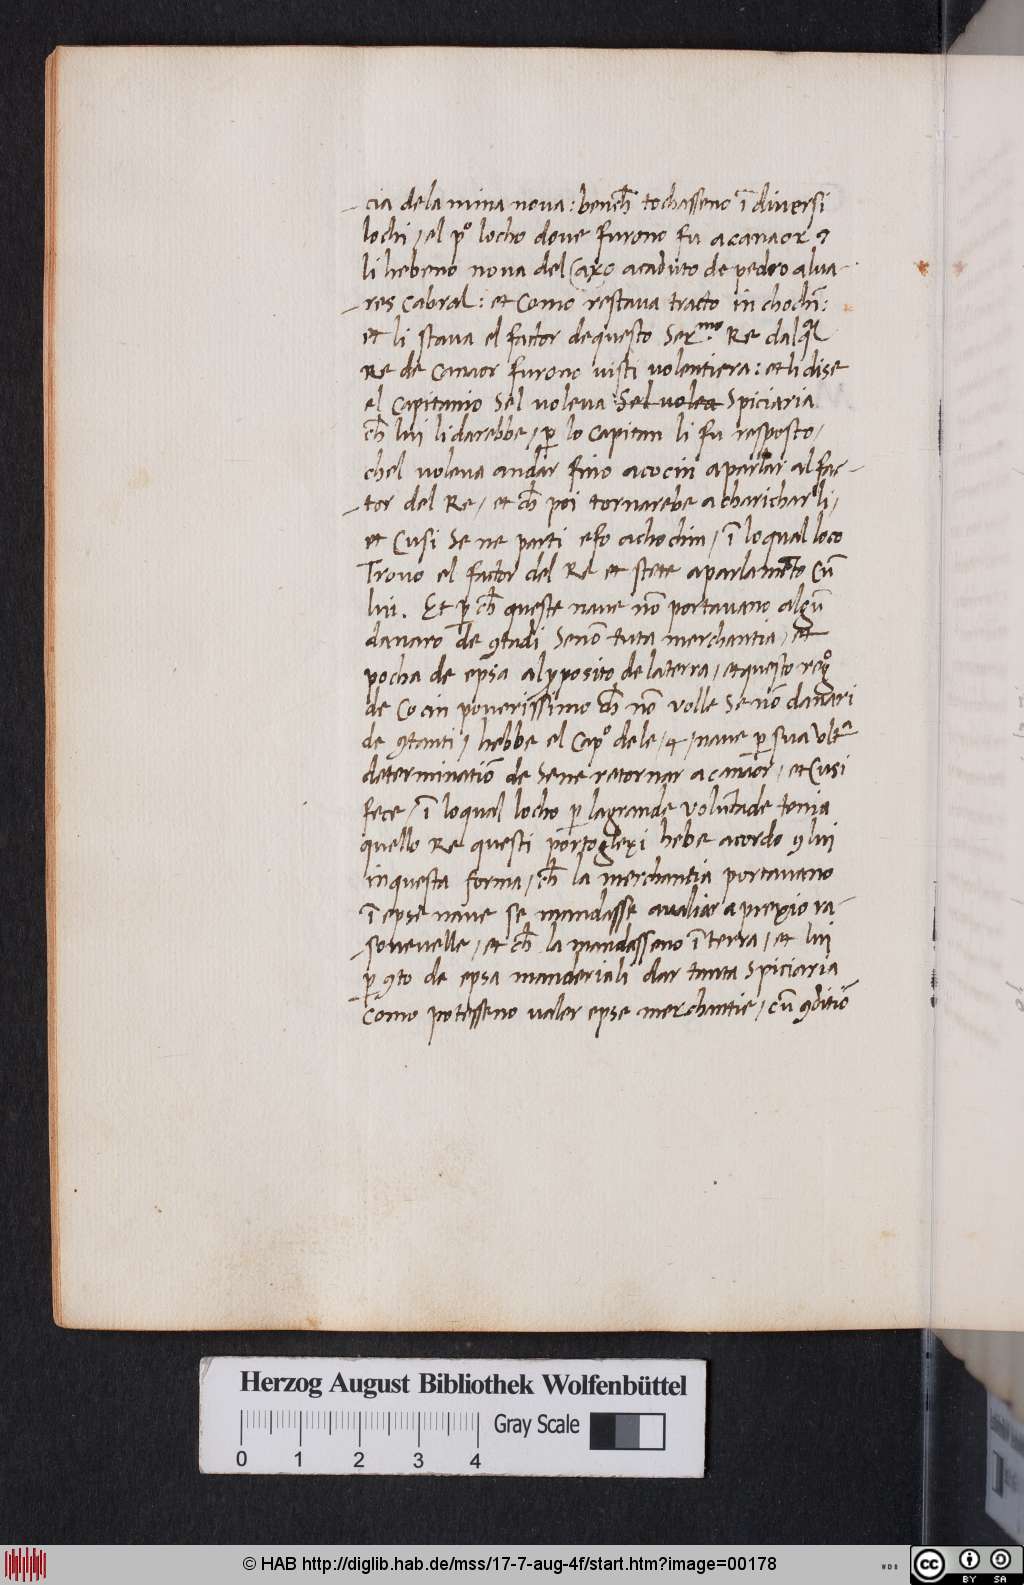 cia dela mina nova: benche᷍ tochasseno ī diversi
lochi / el pº locho dove furono fu a canaor ꝯ
li hebeno nova del Caxo acaduto de pedro alua-
res Cabral: et Como restava tracto in chochī:
et li stava el factor de questo Ser.mo Re dal ql̄
Re de Canaor furono visti volentiera: et li dise
el Capitanio Sel voleva Sel volea Spiciaria
ch̄ lui li darebbe / ꝑ lo Capitan li fu resposto /
chel voleva andar fino a cocin a parlar al fac-
tor del Re / et ch̄ poi tornarebe a charichar li /
et Cusi Se ne parti e fo a chochin / ī lo qual loco
Trovo el factor del Re et stete a parlamēto Cū
lui. Et ꝑ ch̄ queste nave nō portavano algū
danaro de ꝯtadi Senō tuta merchantia / et
pocha de epsa al ꝓposito de la terra / et questo regº
de Cocin poverissimo ch̄ nō volle Se nō danari
de ꝯtanti / hebbe el Capº dele / 4 / nave ꝑ sua Ultᵃ
determinatiō de Sene retornar a canaor / et Cusi
fece / ī lo qual locho ꝑ la grande voluntade tenia
quello Re questi portoglexi hebe acordo ꝯ lui
in questa forma / ch̄ la merchantia portavano
ī epse nave se mandasse avaliar a prexio ra-
sonevelle / et ch̄ la mandasseno ī terra / et lui
ꝑ ꝯto de epsa manderiali dar tanta Spiciaria
Como potesseno valer epse merchantie / cū ꝯditiō
Herzog August Bibliothek Wolfenbüttel
Gray Scale
0 1 2 3 4
© HAB http://diglib.hab.de/mss/17-7-aug-4f/start.htm?image=00178
cc BY SA